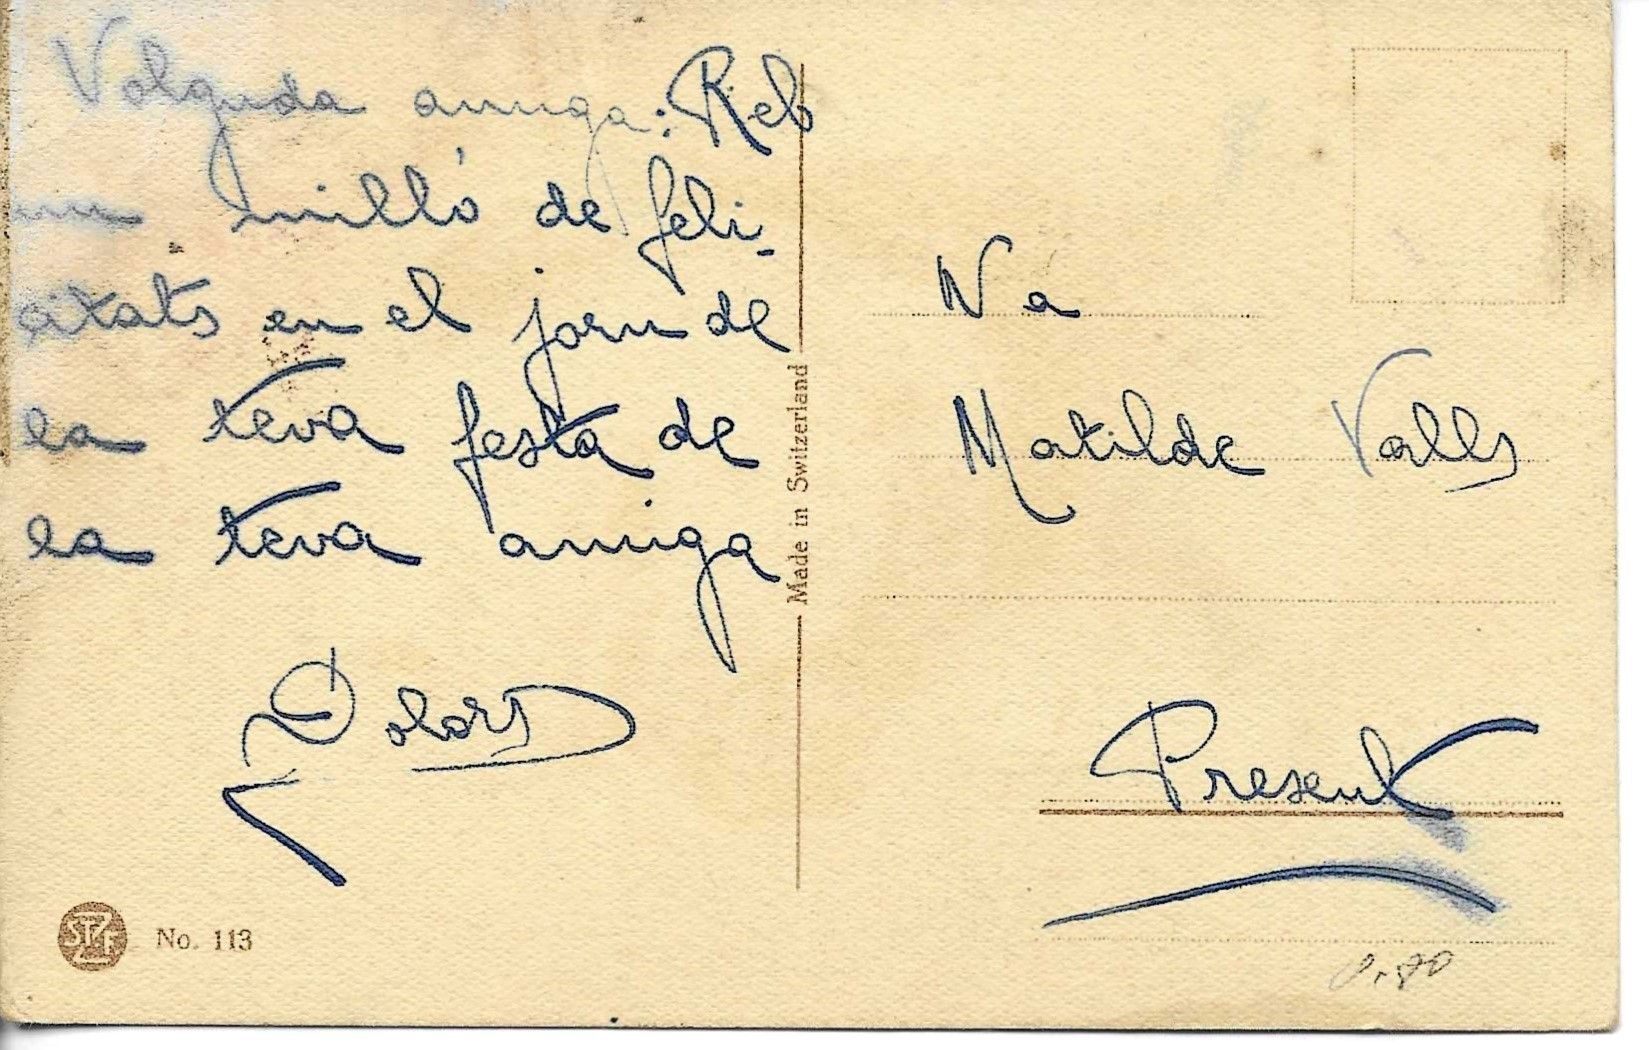 Volguda amiga: Reb
un milló de feli-
citats en el jorn de
la teva festa de
la teva amiga
Dolors
Na
Matilde Valls
Present
Made in Switzerland
STZF
No. 113
0.80